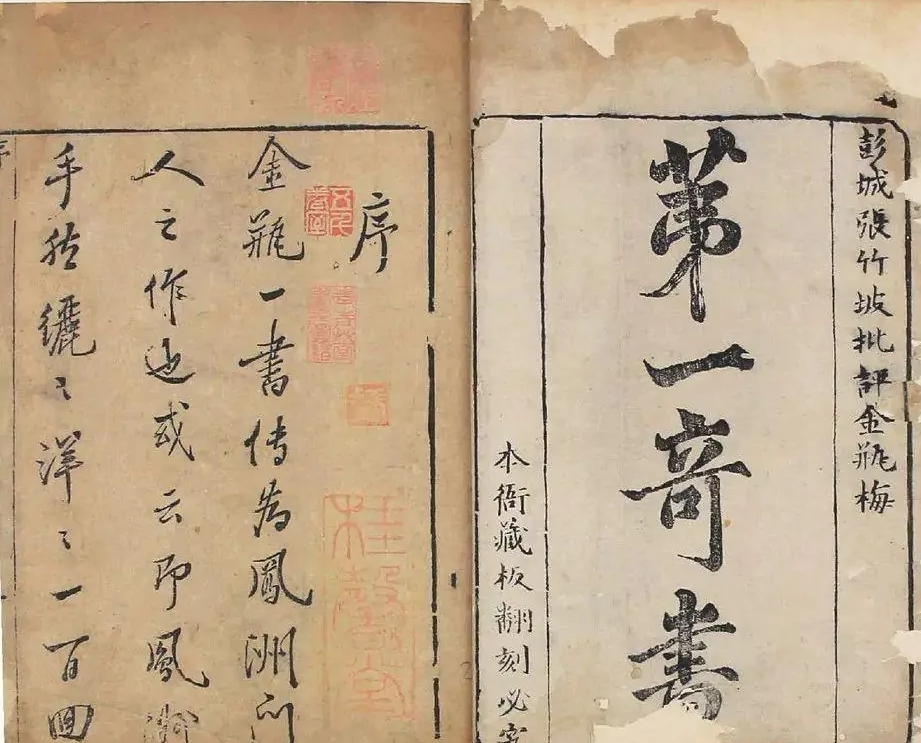 彭城張竹坡批評金瓶梅
苐一竒書
本衙藏板翻刻必究
序
金瓶一書傳為鳳洲門
人之作也或云即鳳洲
手然纚〻洋〻一百回